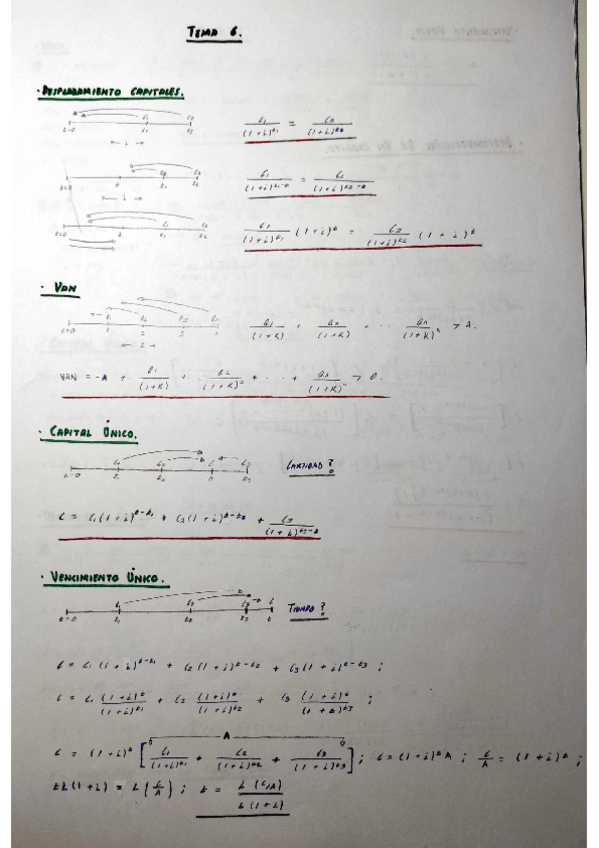 TEMA 6.
· DESPLAZAMIENTO CAPITALES.
t=0 C1 C2
t1 t2
C1/(1+i)^t1 = C2/(1+i)^t2
← i →
t=0 t C1 C2
t1 t2
C1/(1+i)^t1-t = C2/(1+i)^t2-t
← i →
t=0 t C1 C2
t1 t2
C1/(1+i)^t1 (1+i)^t = C2/(1+i)^t2 (1+i)^t
· VAN
t=0 1 2 3 4
/(1+K) + /(1+K) + ... /(1+K)^n > A.
VAN = -A + /(1+K) + /(1+K)^2 + ... + /(1+K)^n > 0.
· CAPITAL ÚNICO.
t=0 C1 C2 C C3
t1 t2 t t3
CANTIDAD ?
C = C1(1+i)^t-t1 + C2(1+i)^t-t2 + C3/(1+i)^t3-t
· VENCIMIENTO ÚNICO.
t=0 C1 C2 C3 C
t1 t2 t3 t
TIEMPO ?
C = C1(1+i)^t-t1 + C2(1+i)^t-t2 + C3(1+i)^t-t3 ;
C = C1 (1+i)^t/(1+i)^t1 + C2 (1+i)^t/(1+i)^t2 + C3 (1+i)^t/(1+i)^t3 ;
A
C = (1+i)^t [C1/(1+i)^t1 + C2/(1+i)^t2 + C3/(1+i)^t3] ; C=(1+i)^t A ; C/A = (1+i)^t ;
t L(1+i) = L(C/A) ; t = L(C/A)/L(1+i)